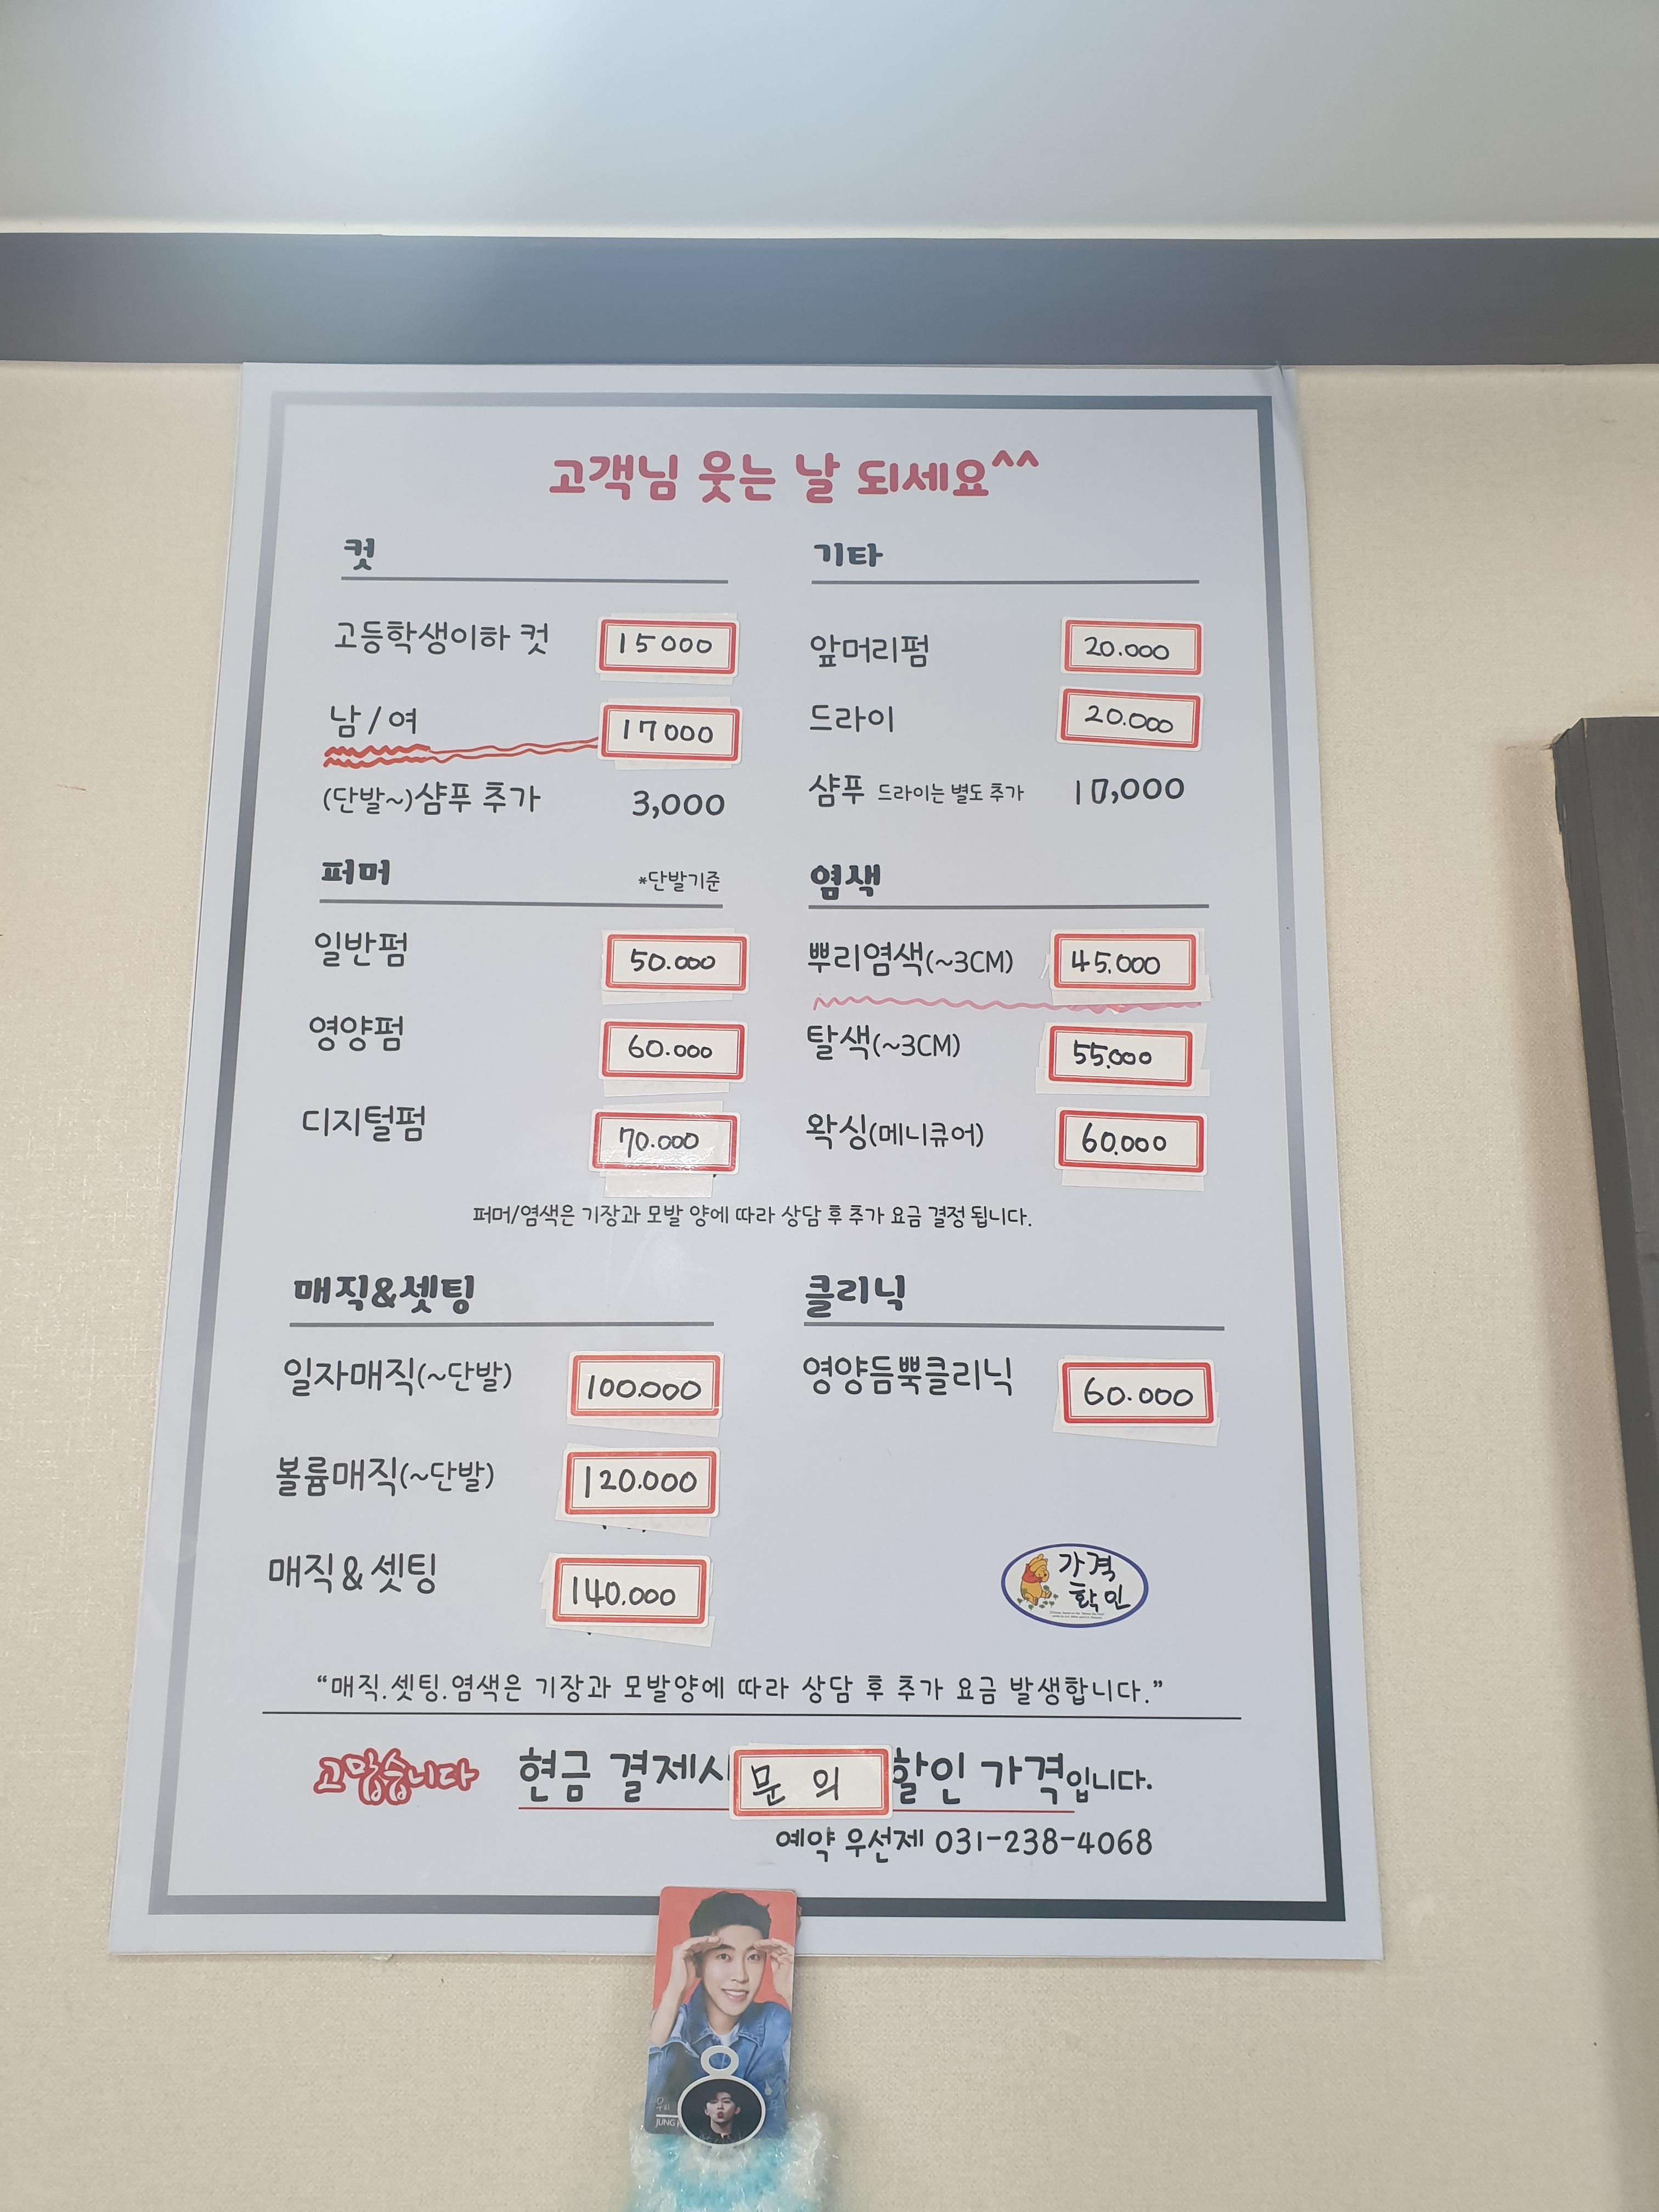 고객님 웃는 날 되세요^^
컷
고등학생이하 컷 15000
남/여 17000
(단발~)샴푸 추가 3,000
기타
앞머리펌 20.000
드라이 20.000
샴푸 드라이는 별도 추가 10,000
퍼머 *단발기준
일반펌 50.000
영양펌 60.000
디지털펌 70.000
염색
뿌리염색(~3CM) 45.000
탈색(~3CM) 55.000
왁싱(메니큐어) 60.000
퍼머/염색은 기장과 모발 양에 따라 상담 후 추가 요금 결정 됩니다.
매직&셋팅
일자매직(~단발) 100.000
볼륨매직(~단발) 120.000
매직&셋팅 140.000
클리닉
영양듬뿍클리닉 60.000
가격
확인
“매직.셋팅.염색은 기장과 모발양에 따라 상담 후 추가 요금 발생합니다.”
고맙습니다 현금 결제시 문의 할인 가격입니다.
예약 우선제 031-238-4068
JUNG